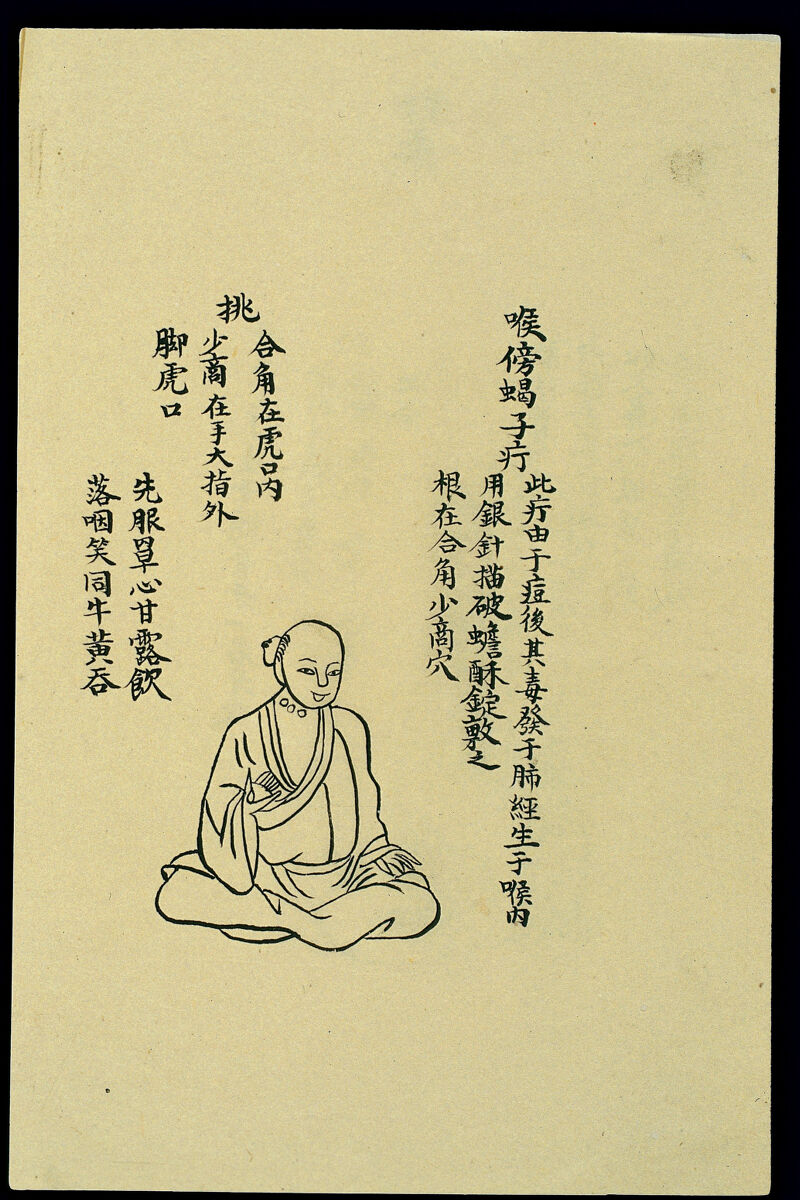 喉傍蝎子疔
此疔由于痘後其毒發于肺經生于喉內
用銀針描破蟾酥錠敷之
根在合角少商穴
挑
合角在虎口內
少商在手大指外
脚虎口
先服單心甘露飲
落咽笑同牛黃吞